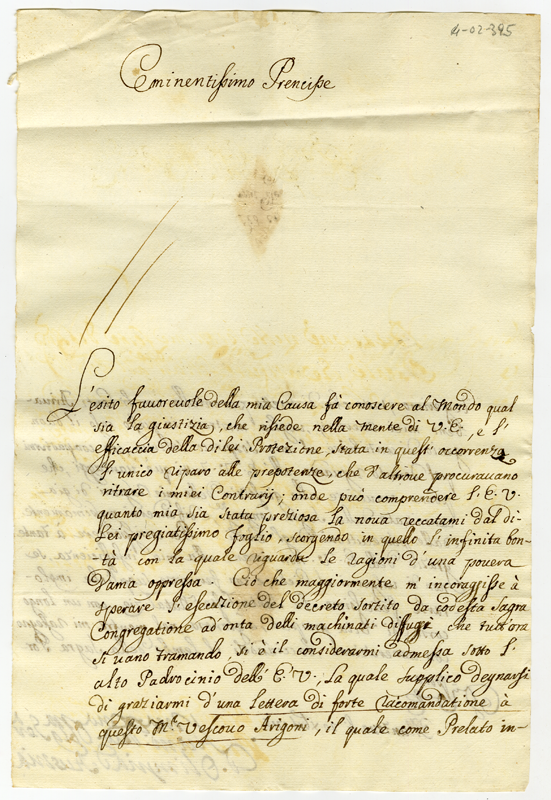 4-02-395
Eminentissimo Prencipe
L'esito fauoreuole della mia Causa fà conoscere al Mondo qual
sia la giustizia, che risiede nella mente di V.E., e l'
efficaccia della di lei Protezione, stata in quest' occorrenza
l'unico riparo alle prepotenze, che d'altroue procurauano
ritrare i miei Contrarij; onde può comprendere l'E.V.
quanto mia sia stata preziosa la noua reccatami dal di
Lei pregiatissimo foglio, scorgendo in quello l'infinita bon-
tà con la quale riguarda le ragioni d'una pouera
Dama oppressa. Ciò che maggiormente m'incoraggisse à
sperare l'esecuzione del decreto sortito da codesta sagra
Congregatione ad'onta delli machinati diffugi che tutt'ora
si uano tramando si è il considerarmi admessa sotto l'
alto Padrocinio dell' E.V., la quale supplico degnarsi
di graziarmi d'una lettera di forte racomandatione à
questo Mr. Vescouo Arigoni, il quale come Prelato in-